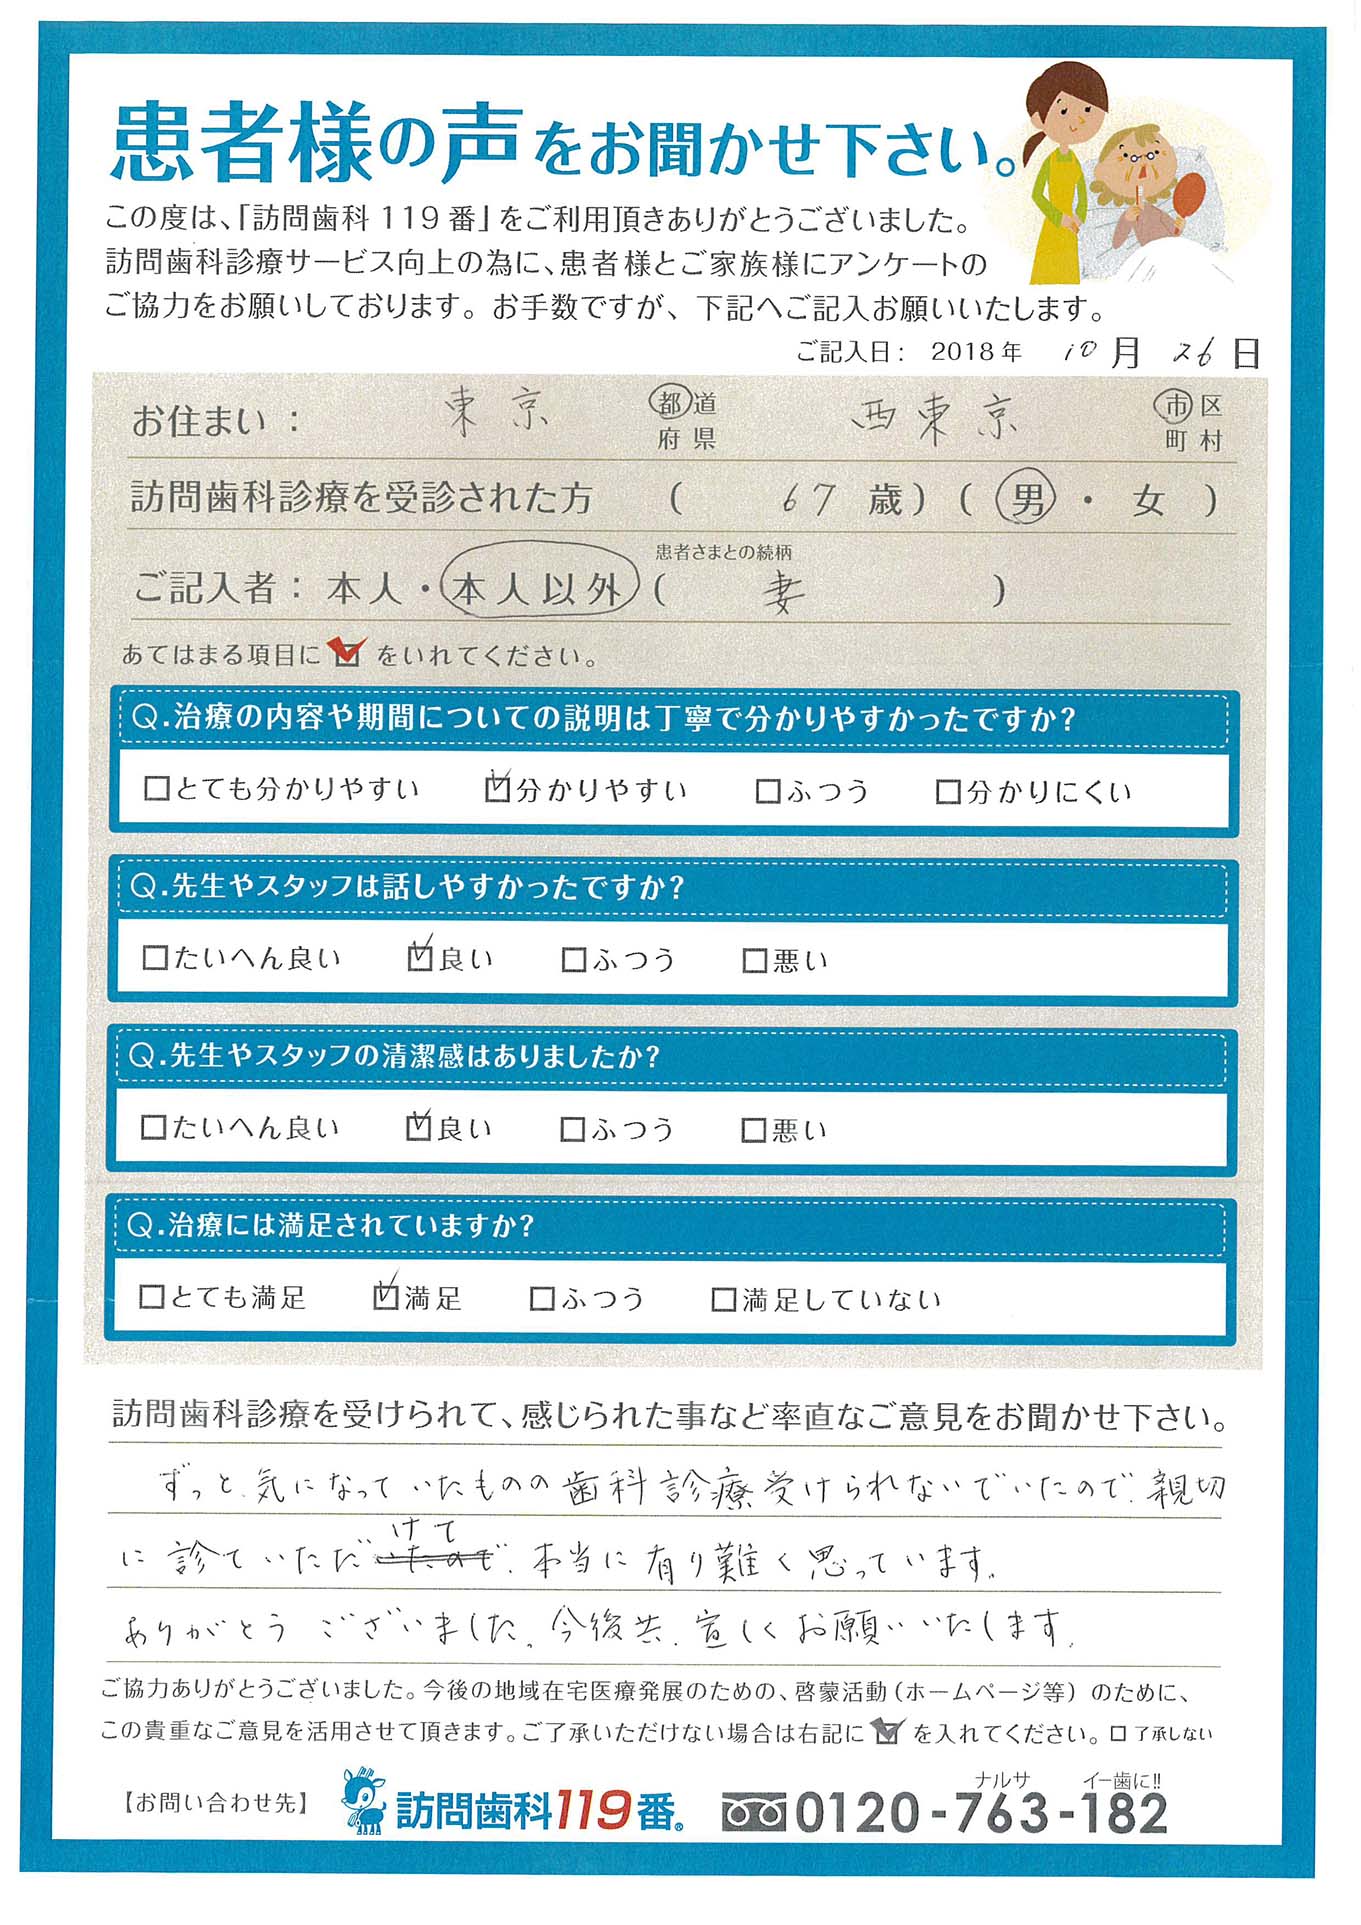 患者様の声をお聞かせ下さい。
この度は、「訪問歯科119番」をご利用頂きありがとうございました。
訪問歯科診療サービス向上の為に、患者様とご家族様にアンケートの
ご協力をお願いしております。お手数ですが、下記へご記入お願いいたします。
ご記入日： 2018年 10月 26日
お住まい： 東京 都道府県 西東京 市区町村
訪問歯科診療を受診された方 （ 67 歳）（ 男 ・ 女 ）
患者さまとの続柄
ご記入者：本人・本人以外（ 妻 ）
あてはまる項目に☑をいれてください。
Q.治療の内容や期間についての説明は丁寧で分かりやすかったですか？
□とても分かりやすい ☑分かりやすい □ふつう □分かりにくい
Q.先生やスタッフは話しやすかったですか？
□たいへん良い ☑良い □ふつう □悪い
Q.先生やスタッフの清潔感はありましたか？
□たいへん良い ☑良い □ふつう □悪い
Q.治療には満足されていますか？
□とても満足 ☑満足 □ふつう □満足していない
訪問歯科診療を受けられて、感じられた事など率直なご意見をお聞かせ下さい。
ずっと、気になっていたものの歯科診療受けられないでいたので、親切
に診ていただけて、本当に有り難く思っています。
ありがとうございました。今後共、宜しくお願いいたします。
ご協力ありがとうございました。今後の地域在宅医療発展のための、啓蒙活動（ホームページ等）のために、
この貴重なご意見を活用させて頂きます。ご了承いただけない場合は右記に☑を入れてください。□了承しない
ナルサ イー歯に!!
【お問い合わせ先】 訪問歯科119番® 0120-763-182